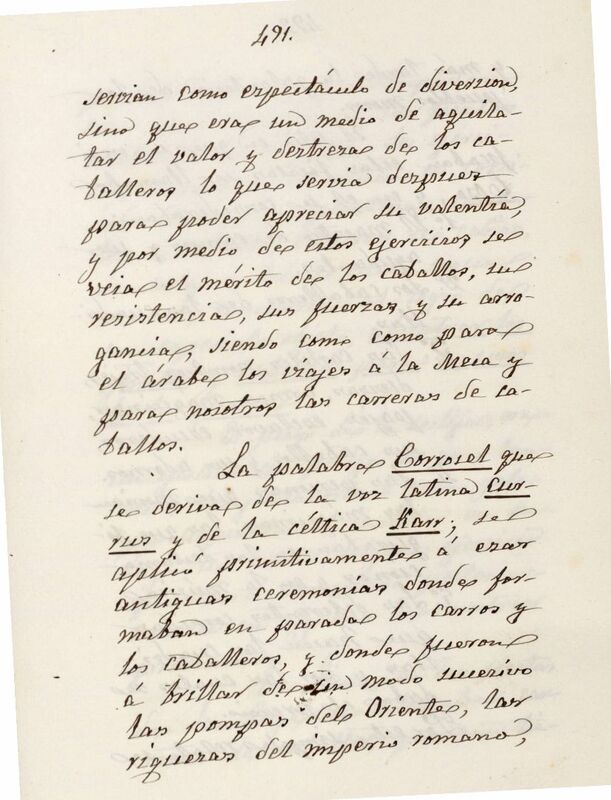 491.
servian como espectáculo de diversion,
sino que era un medio de aquila-
tar el valor y destreza de los ca-
balleros lo que servia despues
para poder apreciar su valentía,
y por medio de estos ejercicios se
veia el mérito de los caballos, su
resistencia, sus fuerzas y su arro-
gancia, siendo como como para
el árabe los viajes á la Meca y
para nosotros las carreras de ca-
ballos.
La palabra Corrosel que
se deriva de la voz latina Cur-
rus y de la céltica Karr, se
aplicó primitivamente á esas
antiguas ceremonias donde for-
maban en parada los carros y
los caballeros, y donde fueron
á brillar de un modo sucesivo
las pompas del Oriente, las
riquezas del imperio romano,